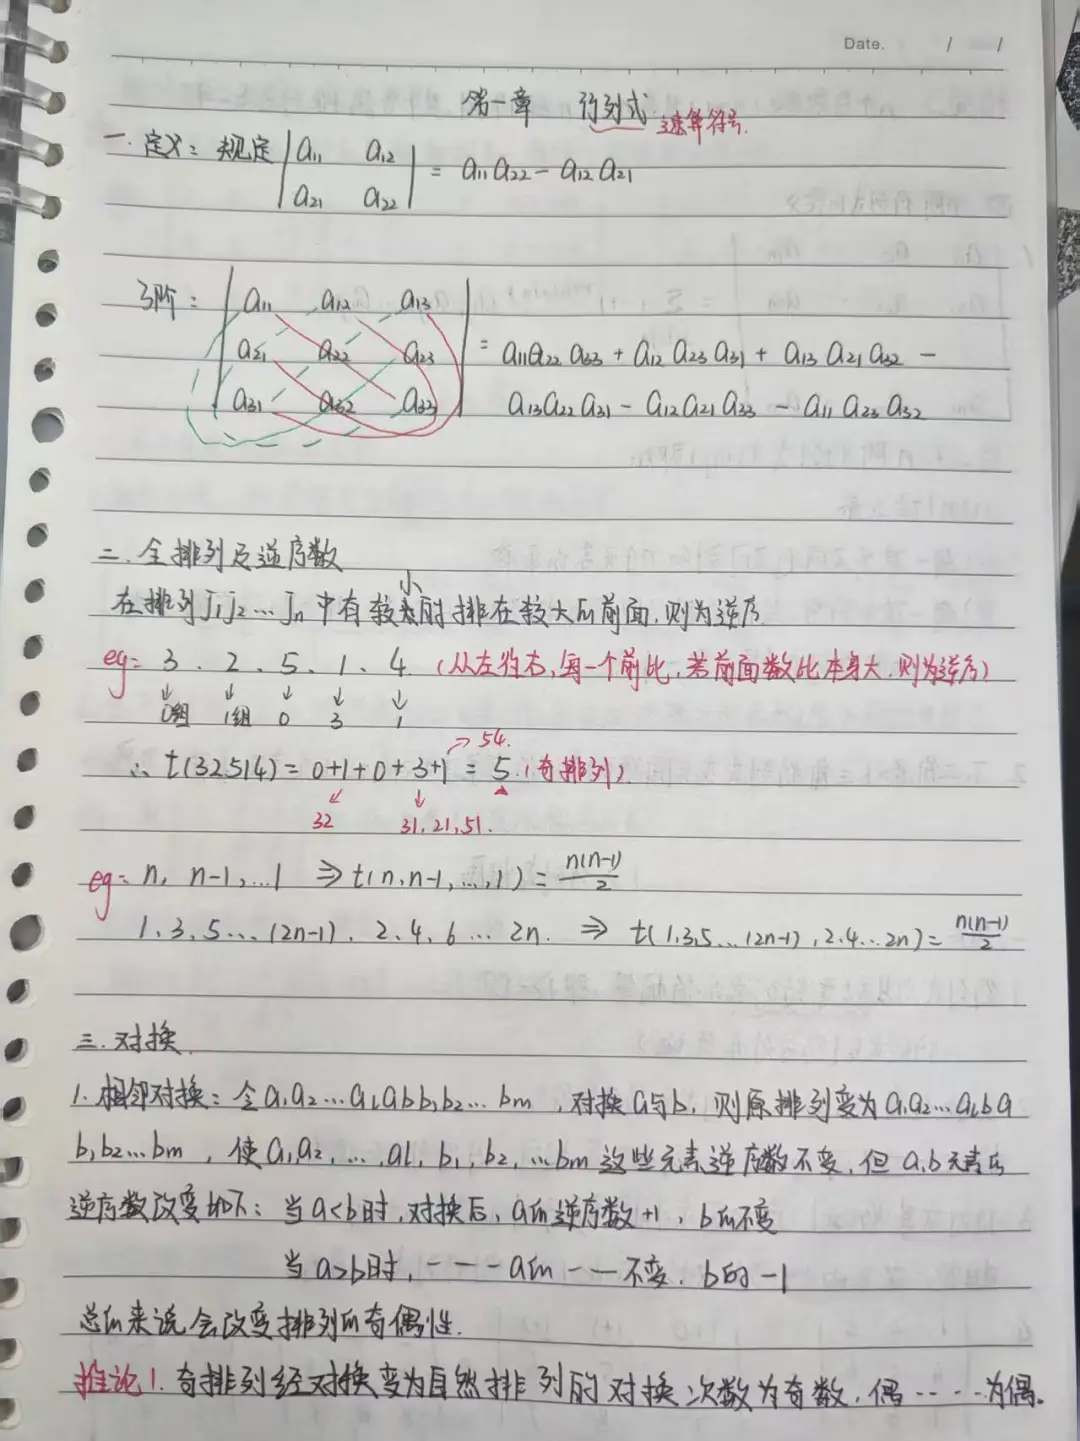 Date. / /
第一章 行列式 运算符号.
一. 定义: 规定 |a11 a12
a21 a22| = a11a22 - a12a21
3阶: |a11 a12 a13
a21 a22 a23 = a11a22a33 + a12a23a31 + a13a21a32 -
a31 a32 a33| a13a22a31 - a12a21a33 - a11a23a32
二. 全排列及逆序数
在排列j1j2…jn中有较小的排在较大的前面,则为逆序
eg: 3. 2. 5. 1. 4. (从左往右,每一个前比,若前面数比本身大,则为逆序)
↓ ↓ ↓ ↓ ↓
0组 1组 0 3 1
→ 54.
∴ t(32514) = 0+1+0+3+1 = 5.(奇排列)
32 31, 21, 51.
eg: n, n-1, …1 ⇒ t(n,n-1,…,1) = n(n-1)/2
1. 3. 5 … (2n-1). 2. 4. 6 … 2n. ⇒ t(1.3.5…(2n-1), 2.4…2n) = n(n-1)/2
三. 对换.
1. 相邻对换: 令a1a2…alabb1b2…bm, 对换a与b, 则原排列变为a1a2…alba
b1b2…bm, 使a1,a2, …,al, b1, b2, …bm这些元素逆序数不变, 但a,b元素的
逆序数改变如下: 当a<b时, 对换后, a的逆序数+1, b的不变
当a>b时, ---a的--不变, b的-1
总的来说会改变排列的奇偶性.
推论1. 奇排列经对换变为自然排列的对换次数为奇数, 偶----为偶.